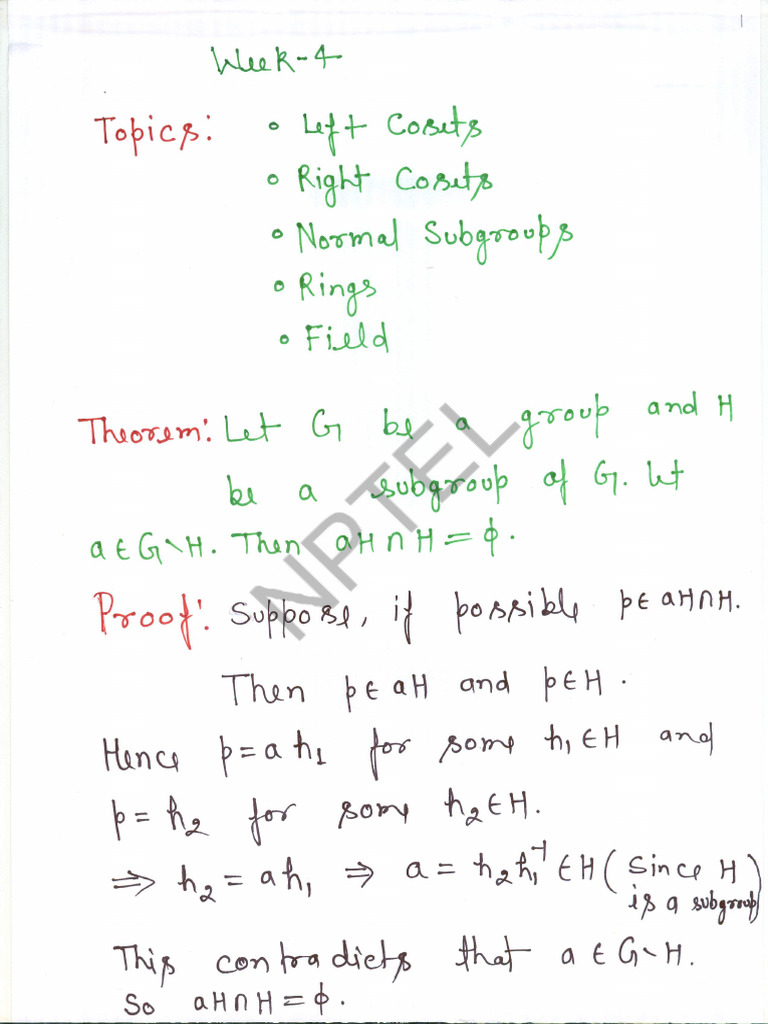 1
Week-4
Topics: • Left Cosets
• Right Cosets
• Normal Subgroups
• Rings
• Field
Theorem: Let G be a group and H
be a subgroup of G. Let
a ∈ G∖H. Then aH∩H = ϕ.
Proof: Suppose, if possible p∈ aH∩H.
Then p∈ aH and p∈H.
Hence p=ah₁ for some h₁∈H and
p=h₂ for some h₂∈H.
⇒ h₂=ah₁ ⇒ a=h₂h₁⁻¹∈H (Since H
is a subgroup)
This contradicts that a ∈ G∖H.
So aH∩H=ϕ.
NPTEL